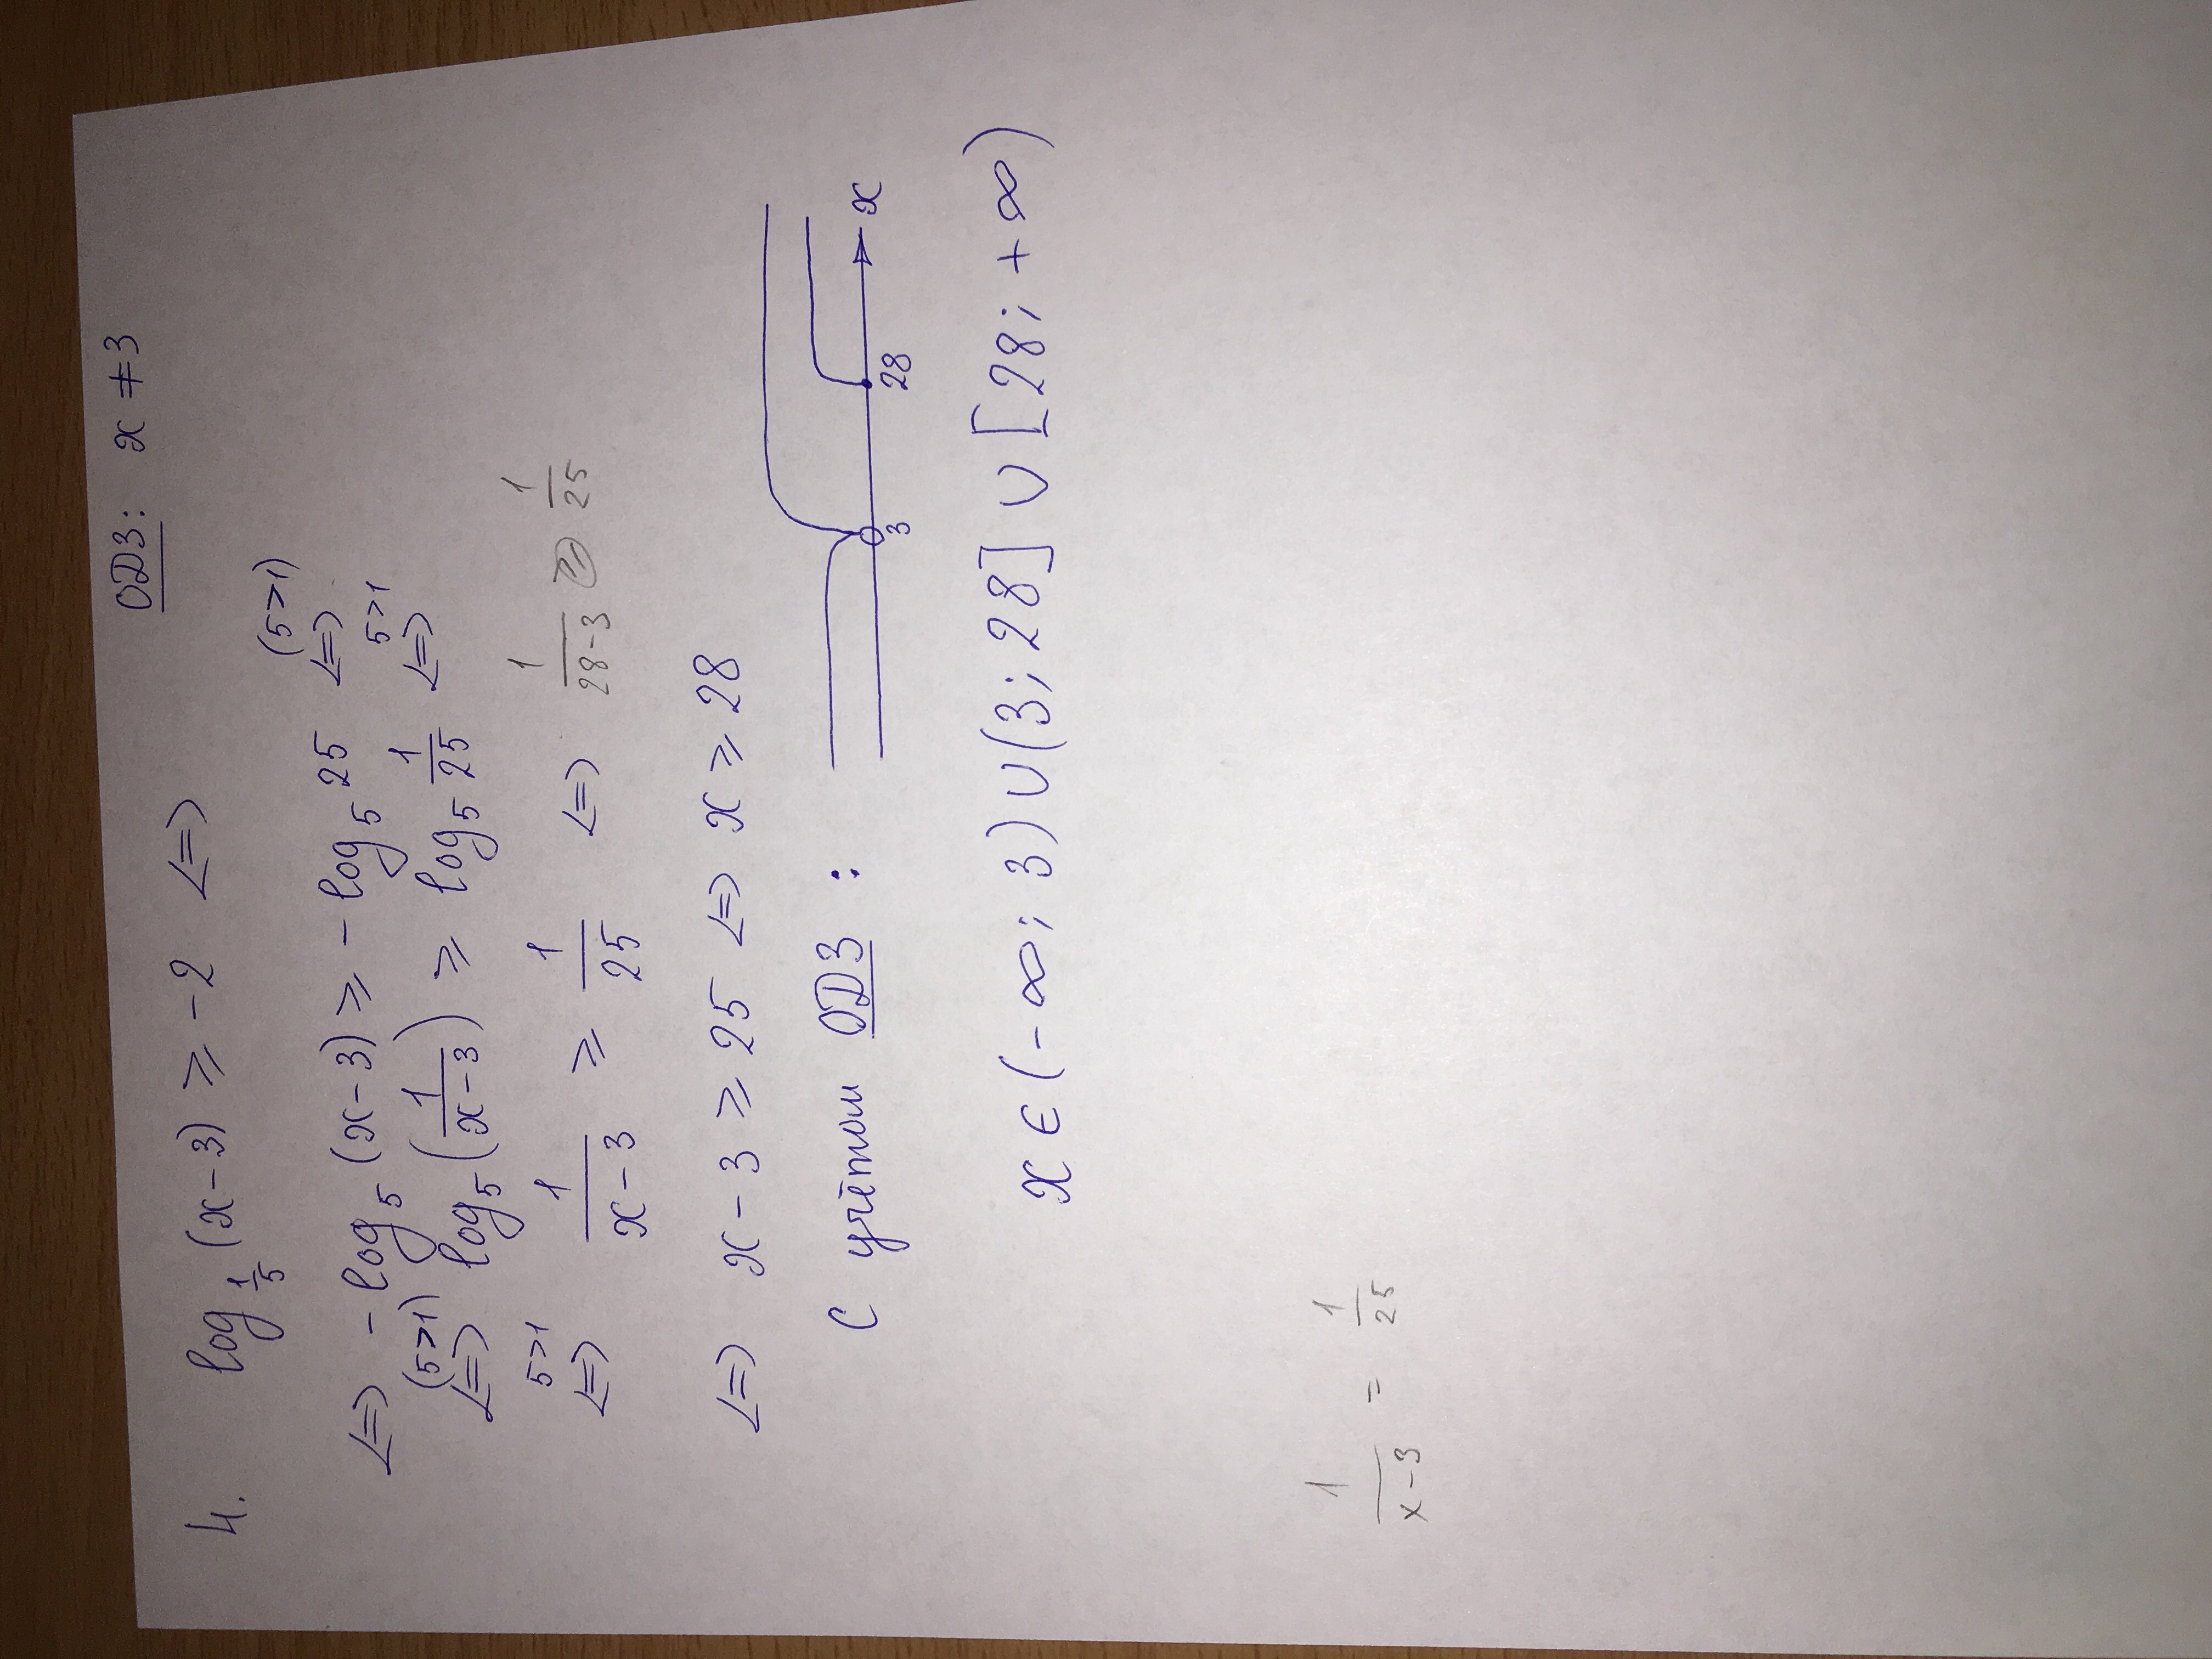 ОДЗ: x ≠ 3
4. log_{1/5} (x-3) ⩾ -2 <=>
<=> -log_5 (x-3) ⩾ -log_5 25 <=> (5>1)
<=> (5>1) log_5 (1/(x-3)) ⩾ log_5 1/25 <=> 5>1
<=> 5>1 1/(x-3) ⩾ 1/25 <=> 1/(28-3) ⩾ 1/25
<=> x-3 ⩾ 25 <=> x ⩾ 28
С учётом ОДЗ: 3 28 x
x ∈ (-∞; 3) ∪ (3; 28] ∪ [28; +∞)
1/(x-3) = 1/25